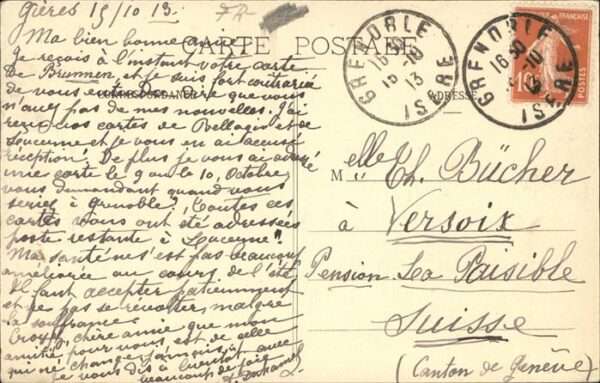 Gières 15/10 13.
Ma bien bonne amie,
CARTE POSTALE
Je reçois à l'instant votre carte
de Brunnen, et je suis fort contrariée
de vous entendre dire que vous
CORRESPONDANCE
ADRESSE
n'avez pas de mes nouvelles. J'ai
reçu vos cartes de Bellagio et de
Lucerne et je vous en ai accusé
réception. De plus je vous ai envoyé
une carte le 9 ou le 10, Octobre,
vous demandant quand vous
seriez à Grenoble. Toutes ces
cartes vous ont été adressées
poste restante à Lucerne.
Ma santé ne s'est pas beaucoup
améliorée au cours de l'été
Il faut accepter patiemment
et ne pas se révolter, malgré
la souffrance.
Croyez, chère amie que mon
amitié pour vous, est de celle
qui ne change jamais, et
je vous dis à bientôt avec
beaucoup de joie
Melle Ch. Bücher
à Versoix
Pension La Paisible
Suisse
(Canton de Genève)
GRENOBLE
16 30
15 -10
13
ISERE
GRENOBLE
16 30
-10
13
ISERE
10